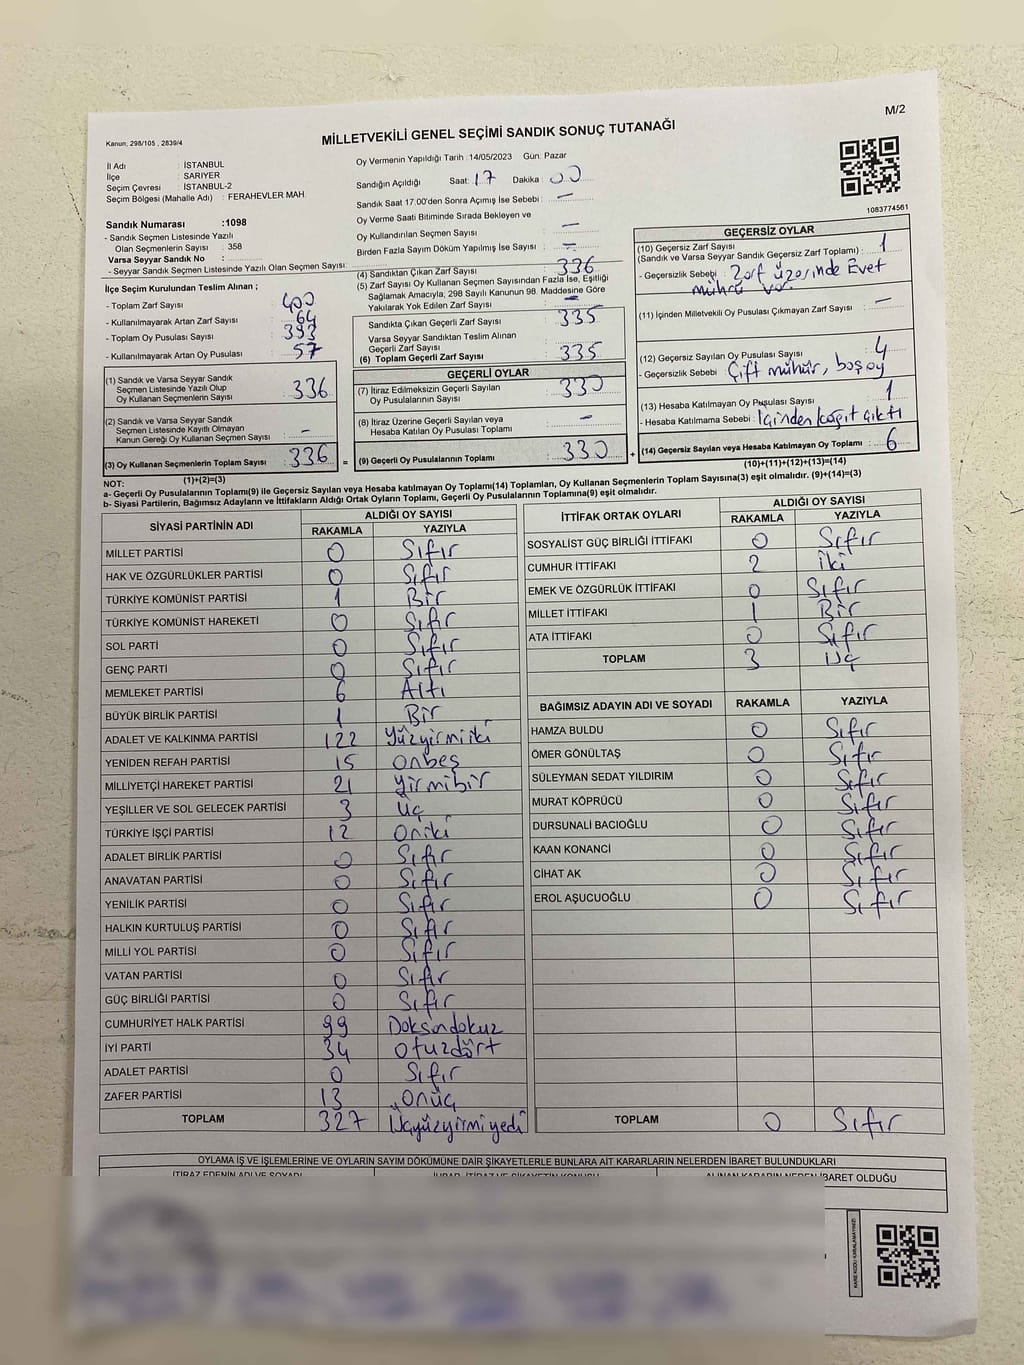 M/2
MİLLETVEKİLİ GENEL SEÇİMİ SANDIK SONUÇ TUTANAĞI
Kanun; 298/105 , 2839/4
İl Adı : İSTANBUL
İlçe : SARIYER
Seçim Çevresi : İSTANBUL-2
Seçim Bölgesi (Mahalle Adı) : FERAHEVLER MAH.
Sandık Numarası :1098
- Sandık Seçmen Listesinde Yazılı
Olan Seçmenlerin Sayısı : 358
Varsa Seyyar Sandık No :
- Seyyar Sandık Seçmen Listesinde Yazılı Olan Seçmen Sayısı:
İlçe Seçim Kurulundan Teslim Alınan ;
- Toplam Zarf Sayısı : 400
- Kullanılmayarak Artan Zarf Sayısı : 64
- Toplam Oy Pusulası Sayısı : 393
- Kullanılmayarak Artan Oy Pusulası : 57
(1) Sandık ve Varsa Seyyar Sandık
Seçmen Listesinde Yazılı Olup
Oy Kullanan Seçmenlerin Sayısı : 336
(2) Sandık ve Varsa Seyyar Sandık
Seçmen Listesinde Kayıtlı Olmayan
Kanun Gereği Oy Kullanan Seçmen Sayısı : -
(3) Oy Kullanan Seçmenlerin Toplam Sayısı : 336
(1)+(2)=(3)
Oy Vermenin Yapıldığı Tarih :14/05/2023 Gün: Pazar
Sandığın Açıldığı Saat: 17 Dakika : 00
Sandık Saat 17.00'den Sonra Açımış İse Sebebi : -
Oy Verme Saati Bitiminde Sırada Bekleyen ve
Oy Kullandırılan Seçmen Sayısı : -
Birden Fazla Sayım Döküm Yapılmış İse Sayısı : -
(4) Sandıktan Çıkan Zarf Sayısı : 336
(5) Zarf Sayısı Oy Kullanan Seçmen Sayısından Fazla İse, Eşitliği
Sağlamak Amacıyla, 298 Sayılı Kanunun 98. Maddesine Göre
Yakılarak Yok Edilen Zarf Sayısı : -
Sandıkta Çıkan Geçerli Zarf Sayısı : 335
Varsa Seyyar Sandıktan Teslim Alınan
Geçerli Zarf Sayısı :
(6) Toplam Geçerli Zarf Sayısı : 335
GEÇERLİ OYLAR
(7) İtiraz Edilmeksizin Geçerli Sayılan
Oy Pusulalarının Sayısı : 330
(8) İtiraz Üzerine Geçerli Sayılan veya
Hesaba Katılan Oy Pusulası Toplamı : -
= (9) Geçerli Oy Pusulalarının Toplamı : 330 +
1083774561
GEÇERSİZ OYLAR
(10) Geçersiz Zarf Sayısı
(Sandık ve Varsa Seyyar Sandık Geçersiz Zarf Toplamı) : 1
- Geçersizlik Sebebi : Zarf üzerinde Evet
mührü var.
(11) İçinden Milletvekili Oy Pusulası Çıkmayan Zarf Sayısı : -
(12) Geçersiz Sayılan Oy Pusulası Sayısı : 4
- Geçersizlik Sebebi : Çift mühür, boş oy
(13) Hesaba Katılmayan Oy Pusulası Sayısı : 1
- Hesaba Katılmama Sebebi : İçinden kağıt çıktı
(14) Geçersiz Sayılan veya Hesaba Katılmayan Oy Toplamı : 6
(10)+(11)+(12)+(13)=(14)
NOT:
a- Geçerli Oy Pusulalarının Toplamı(9) ile Geçersiz Sayılan veya Hesaba Katılmayan oy Toplamı(14) Toplamları, Oy Kullanan Seçmenlerin Toplam Sayısına(3) eşit olmalıdır. (9)+(14)=(3)
b- Siyasi Partilerin, Bağımsız Adayların ve İttifakların Aldığı Ortak Oyların Toplamı, Geçerli Oy Pusulalarının Toplamına(9) eşit olmalıdır.
SİYASİ PARTİNİN ADI ALDIĞI OY SAYISI
RAKAMLA YAZIYLA
MİLLET PARTİSİ 0 Sıfır
HAK VE ÖZGÜRLÜKLER PARTİSİ 0 Sıfır
TÜRKİYE KOMÜNİST PARTİSİ 1 Bir
TÜRKİYE KOMÜNİST HAREKETİ 0 Sıfır
SOL PARTİ 0 Sıfır
GENÇ PARTİ 0 Sıfır
MEMLEKET PARTİSİ 6 Altı
BÜYÜK BİRLİK PARTİSİ 1 Bir
ADALET VE KALKINMA PARTİSİ 122 Yüzyirmiiki
YENİDEN REFAH PARTİSİ 15 onbeş
MİLLİYETÇİ HAREKET PARTİSİ 21 yirmibir
YEŞİLLER VE SOL GELECEK PARTİSİ 3 üç
TÜRKİYE İŞÇİ PARTİSİ 12 Oniki
ADALET BİRLİK PARTİSİ 0 Sıfır
ANAVATAN PARTİSİ 0 Sıfır
YENİLİK PARTİSİ 0 Sıfır
HALKIN KURTULUŞ PARTİSİ 0 Sıfır
MİLLİ YOL PARTİSİ 0 Sıfır
VATAN PARTİSİ 0 Sıfır
GÜÇ BİRLİĞİ PARTİSİ 0 Sıfır
CUMHURİYET HALK PARTİSİ 99 Doksandokuz
İYİ PARTİ 34 otuzdört
ADALET PARTİSİ 0 Sıfır
ZAFER PARTİSİ 13 onüç
TOPLAM 327 Üçyüzyirmiyedi
İTTİFAK ORTAK OYLARI ALDIĞI OY SAYISI
RAKAMLA YAZIYLA
SOSYALİST GÜÇ BİRLİĞİ İTTİFAKI 0 Sıfır
CUMHUR İTTİFAKI 2 iki
EMEK VE ÖZGÜRLÜK İTTİFAKI 0 Sıfır
MİLLET İTTİFAKI 1 Bir
ATA İTTİFAKI 0 Sıfır
TOPLAM 3 Üç
BAĞIMSIZ ADAYIN ADI VE SOYADI RAKAMLA YAZIYLA
HAMZA BULDU 0 Sıfır
ÖMER GÖNÜLTAŞ 0 Sıfır
SÜLEYMAN SEDAT YILDIRIM 0 Sıfır
MURAT KÖPRÜCÜ 0 Sıfır
DURSUNALİ BACIOĞLU 0 Sıfır
KAAN KONANCİ 0 Sıfır
CİHAT AK 0 Sıfır
EROL AŞUCUOĞLU 0 Sıfır
TOPLAM 0 Sıfır
OYLAMA İŞ VE İŞLEMLERİNE VE OYLARIN SAYIM DÖKÜMÜNE DAİR ŞİKAYETLERLE BUNLARA AİT KARARLARIN NELERDEN İBARET BULUNDUKLARI
İTİRAZ EDENİN ADI VE SOYADI İHBAR, İTİRAZ VE ŞİKAYETİN KONUSU ALINAN KARARIN NEDEN İBARET OLDUĞU
KARE KODU KARALAMAYINIZ!